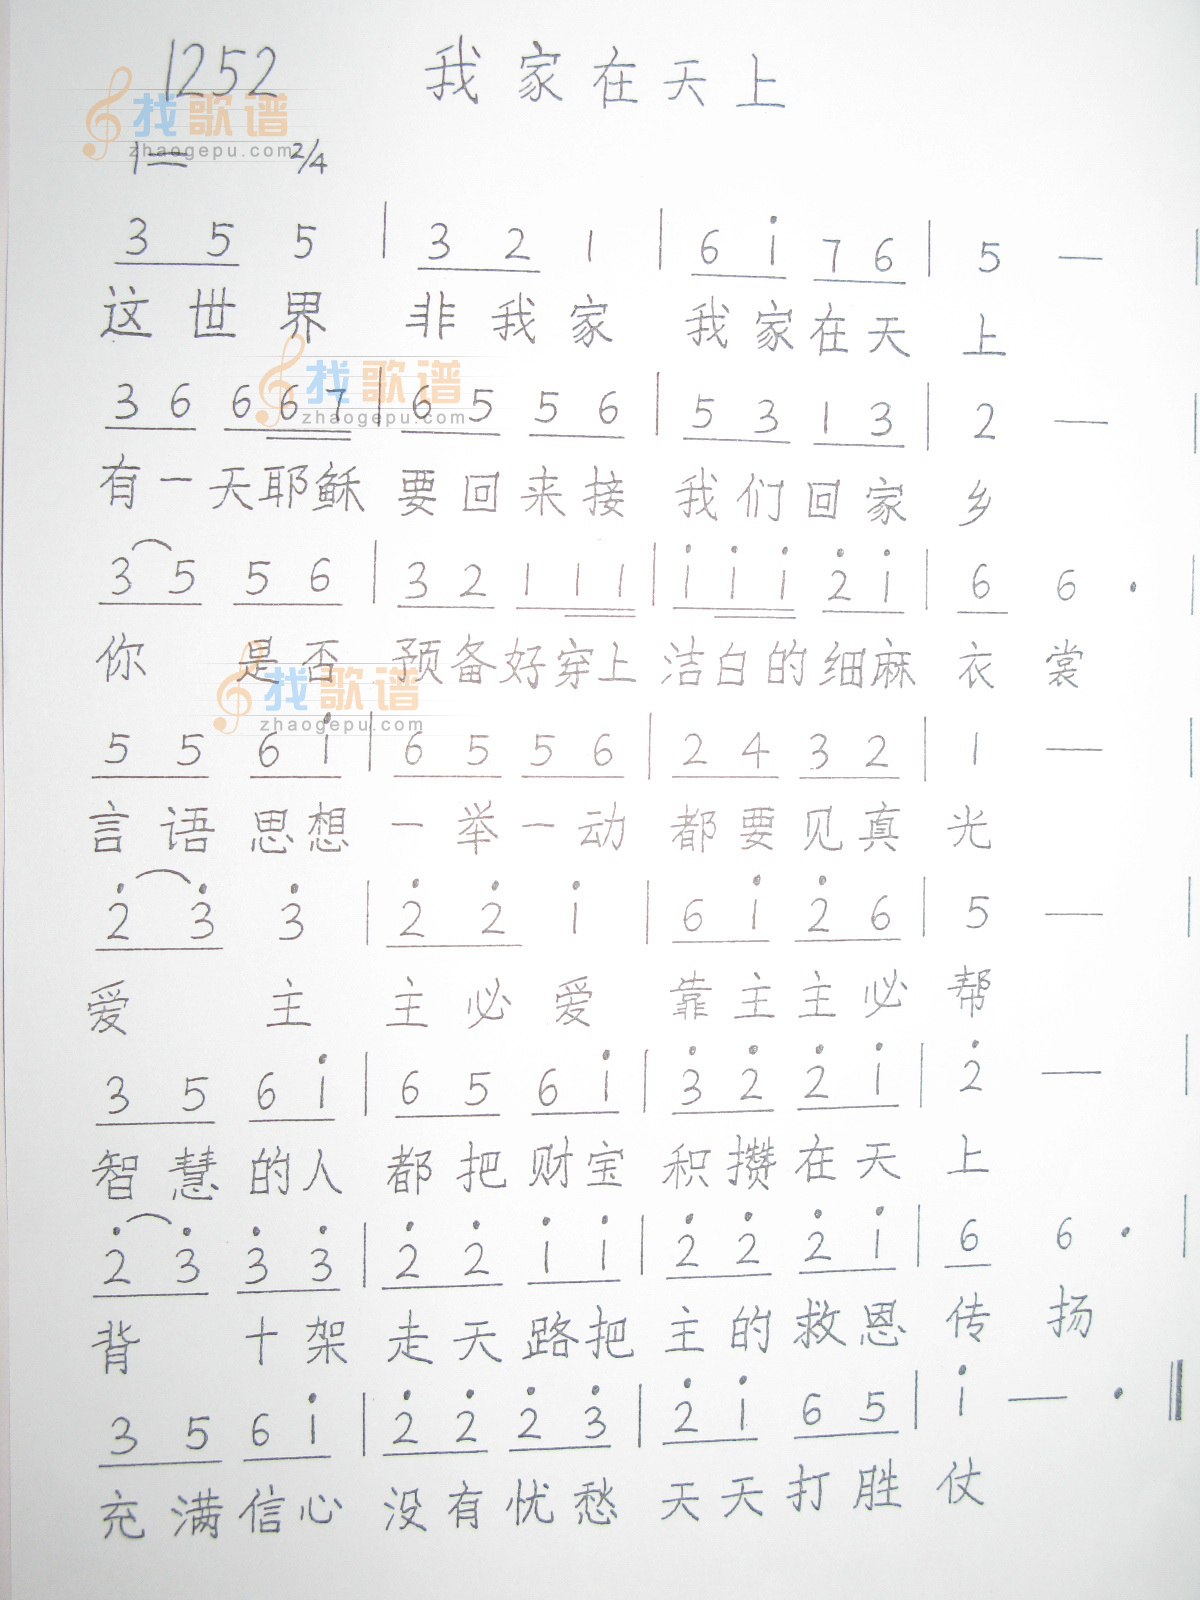 1252 我家在天上
找歌谱
zhaogepu.com
1= 2/4
3 5 5 | 3 2 1 | 6 i 7 6 | 5 — |
这世界 非我家 我家在天上
找歌谱
zhaogepu.com
3 6 6 6 7 | 6 5 5 6 | 5 3 1 3 | 2 — |
有一天耶稣 要回来接 我们回家乡
3 5 5 6 | 3 2 1 1 1 | i i i 2 i | 6 6 · |
你 是否 预备好穿上 洁白的细麻 衣裳
找歌谱
zhaogepu.com
5 5 6 i | 6 5 5 6 | 2 4 3 2 | 1 —
言语思想 一举一动 都要见真光
2 3 3 | 2 2 i | 6 i 2 6 | 5 — |
爱 主 主必爱 靠主主必帮
3 5 6 i | 6 5 6 i | 3 2 2 i | 2 — |
智慧的人 都把财宝 积攒在天上
2 3 3 3 | 2 2 i i | 2 2 2 i | 6 6 · |
背 十架 走天路把 主的救恩 传扬
3 5 6 i | 2 2 2 3 | 2 i 6 5 | i — · ‖
充满信心 没有忧愁 天天打胜仗